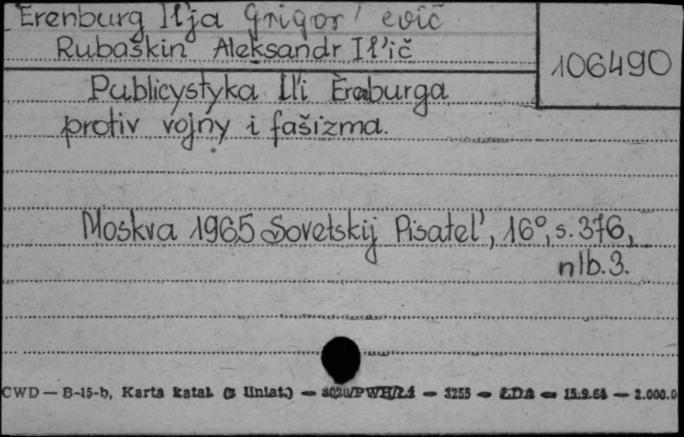 Erenburg Il'ja Grigor'evič
Rubaškin Aleksandr Il'ič
106490
Publicystyka Il'i Èraburga
protiv vojny i fašizma.
Moskva 1965 Sovetskij Pisatel', 16°, s. 376,
nlb. 3.
CWD — B-15-b, Karta katal. (z liniat.) — 3020/PWH/Łd — 3255 — ŁDA — 15.9.64 — 2.000.0